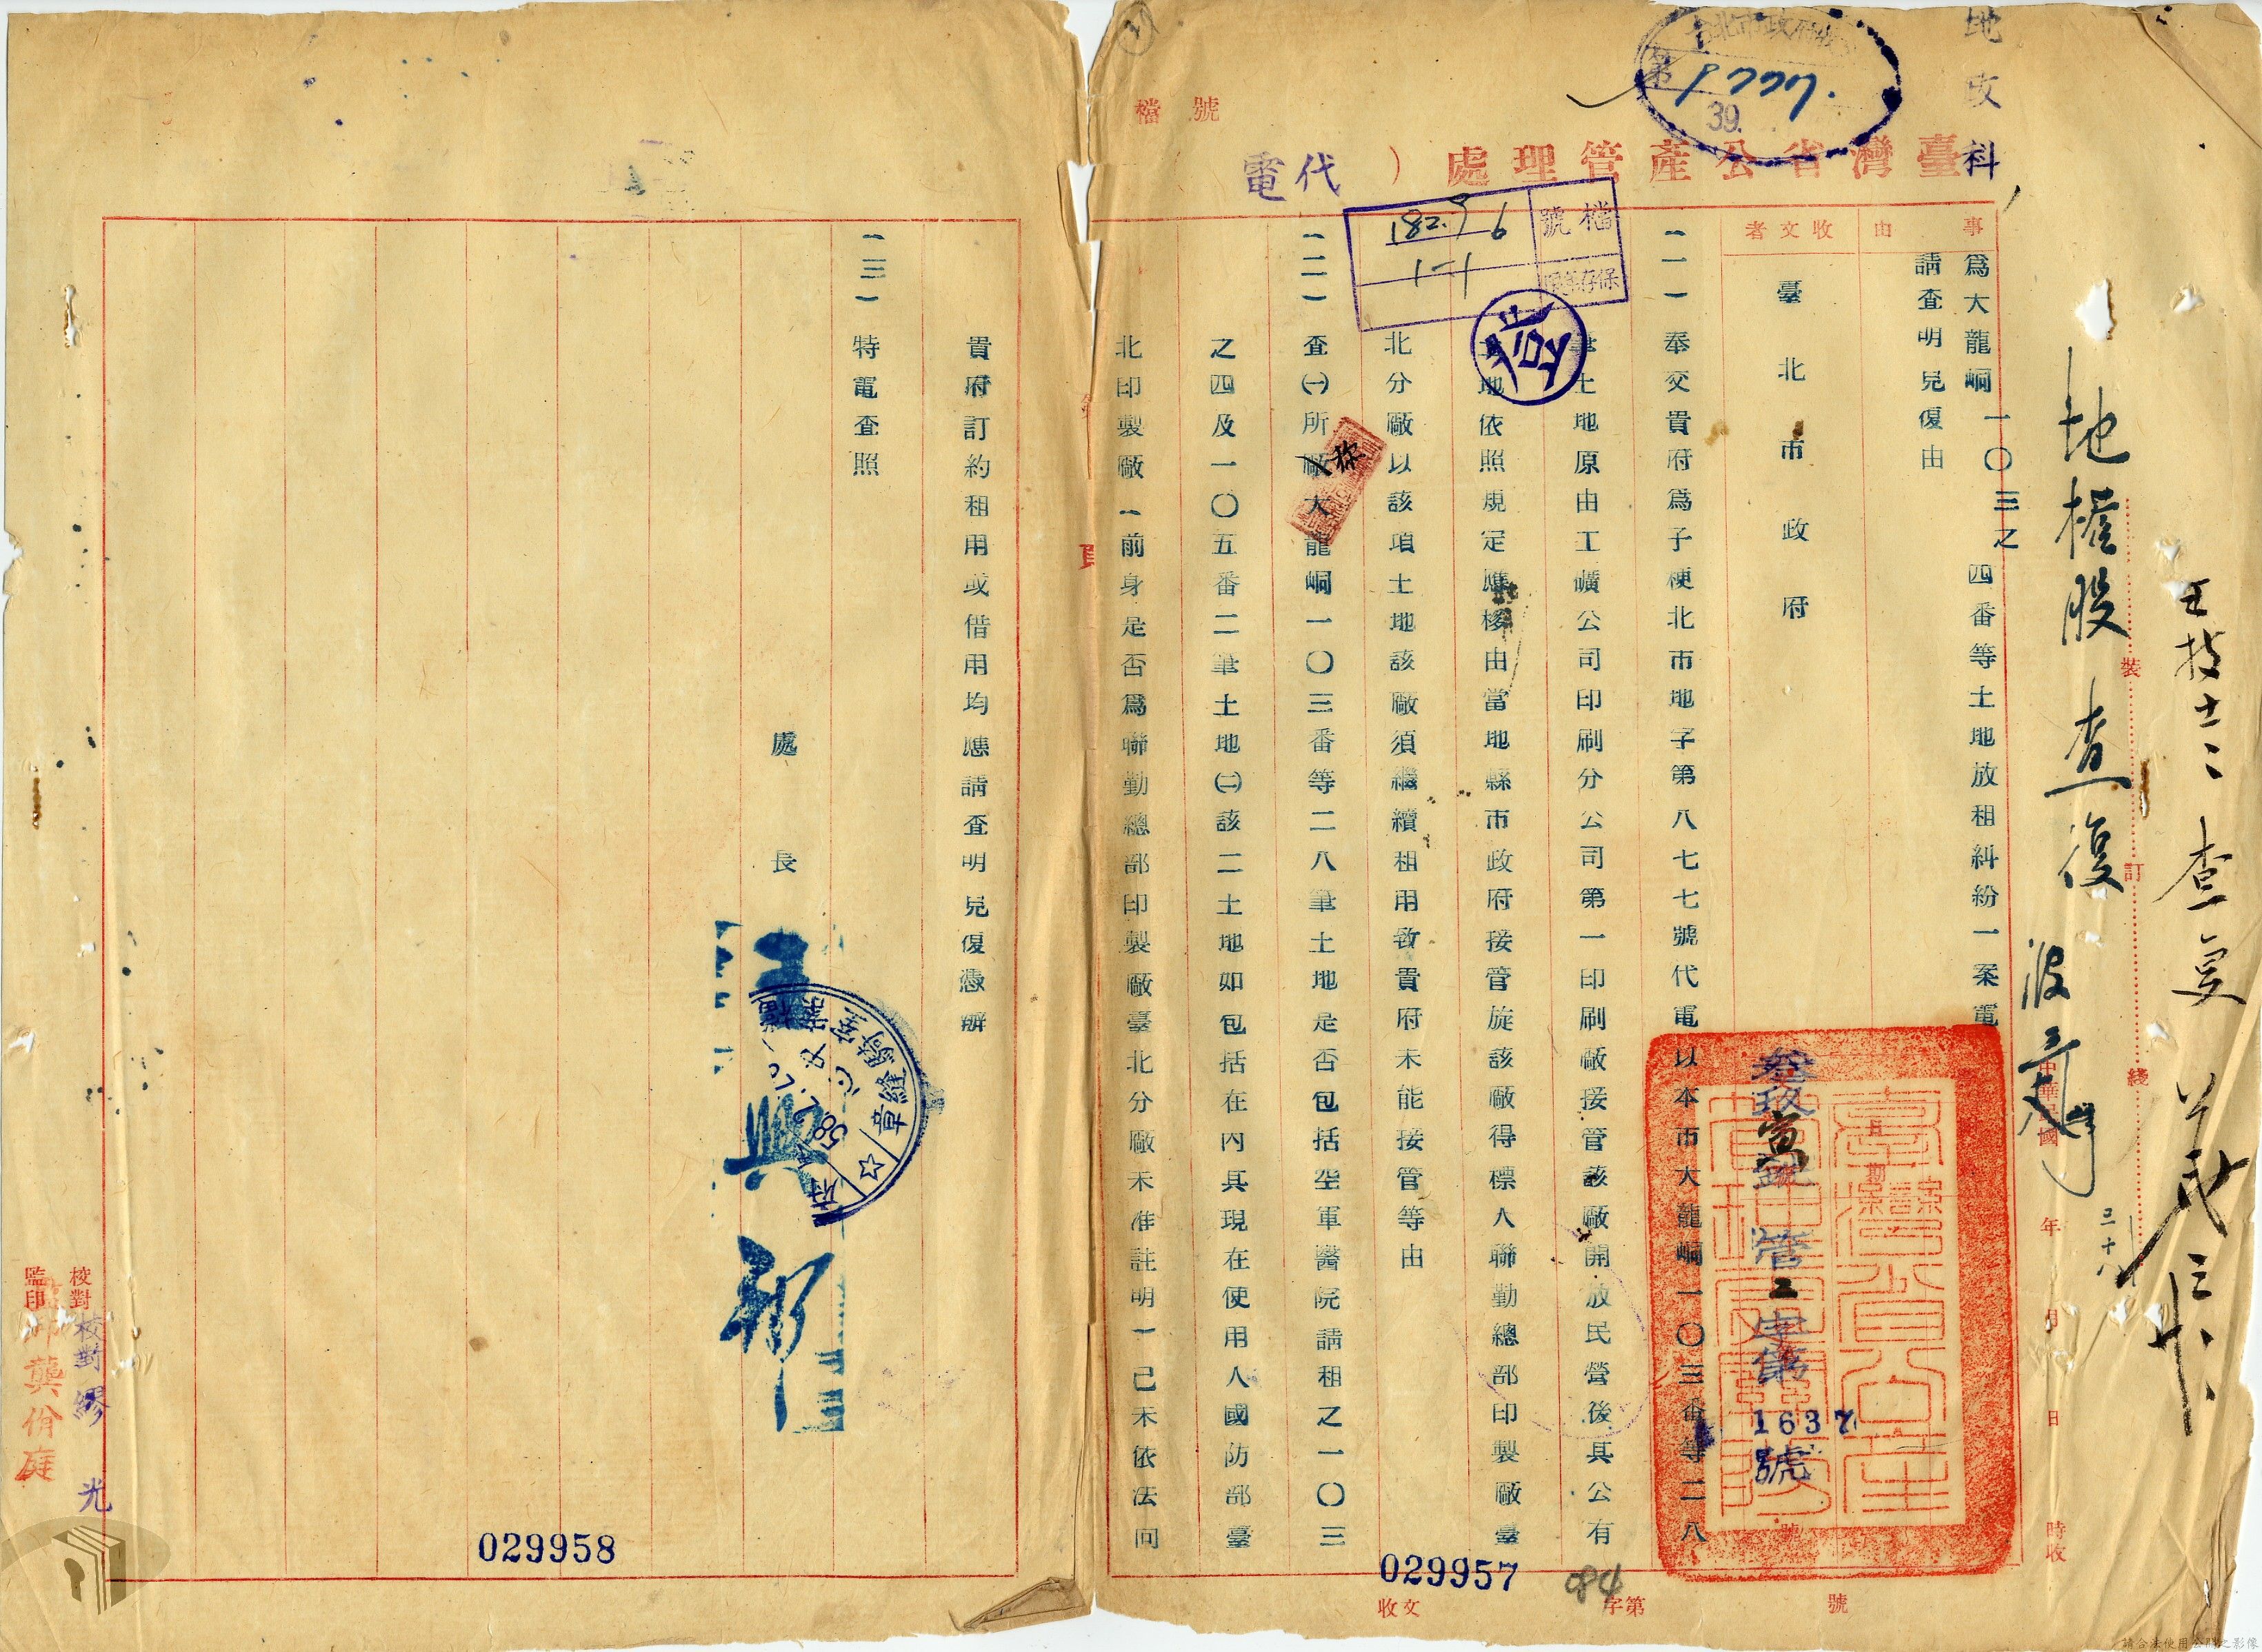 地政科
台北市政府收
第9777.
39.
檔號
臺灣省公產管理處)代電
檔號
182.9 6
1-1
保存年限
登
事由
為大龍峒一〇三之四番等土地放租糾紛一案電
請查明見復由
收文者
臺北市政府
(一)奉交貴府為子梗北市地字第八七七號代電以本市大龍峒一〇三番等二八
筆土地原由工礦公司印刷分公司第一印刷廠接管該廠開放民營後其公有
土地依照規定應移由當地縣市政府接管旋該廠得標人聯勤總部印製廠臺
北分廠以該項土地該廠須繼續租用致貴府未能接管等由
(二)查㈠所稱大龍峒一〇三番等二八筆土地是否包括空軍醫院請租之一〇三
之四及一〇五番二筆土地㈡該二土地如包括在內其現在使用人國防部臺
北印製廠(前身是否為聯勤總部印製廠臺北分廠未准註明)已未依法向
貴府訂約租用或借用均應請查明見復憑辦
(三)特電查照
處長
地權股 查復
王技士
三十八
裝
訂
綫
中華民國
年
月
日
時收
叁玖
管二字第
1637
號
騎縫章
監印
龔份庭
校對
校對繆光
收文
字第
號
084
029957
029958
請合法使用公開之影像